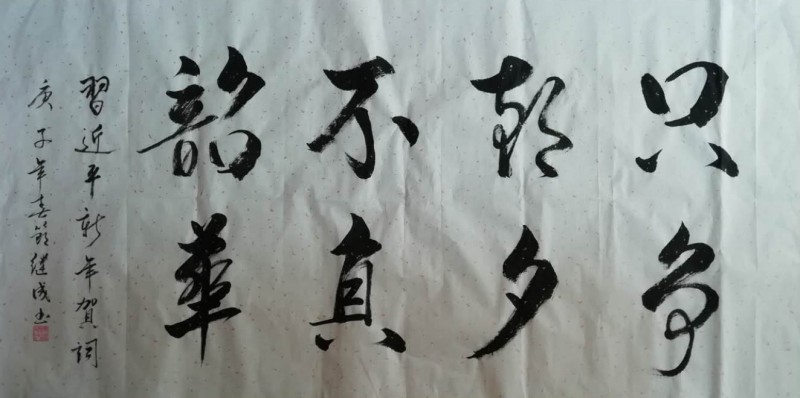 只争
朝夕
不真
韶華
習近平新年賀詞
庚子年春節继成书